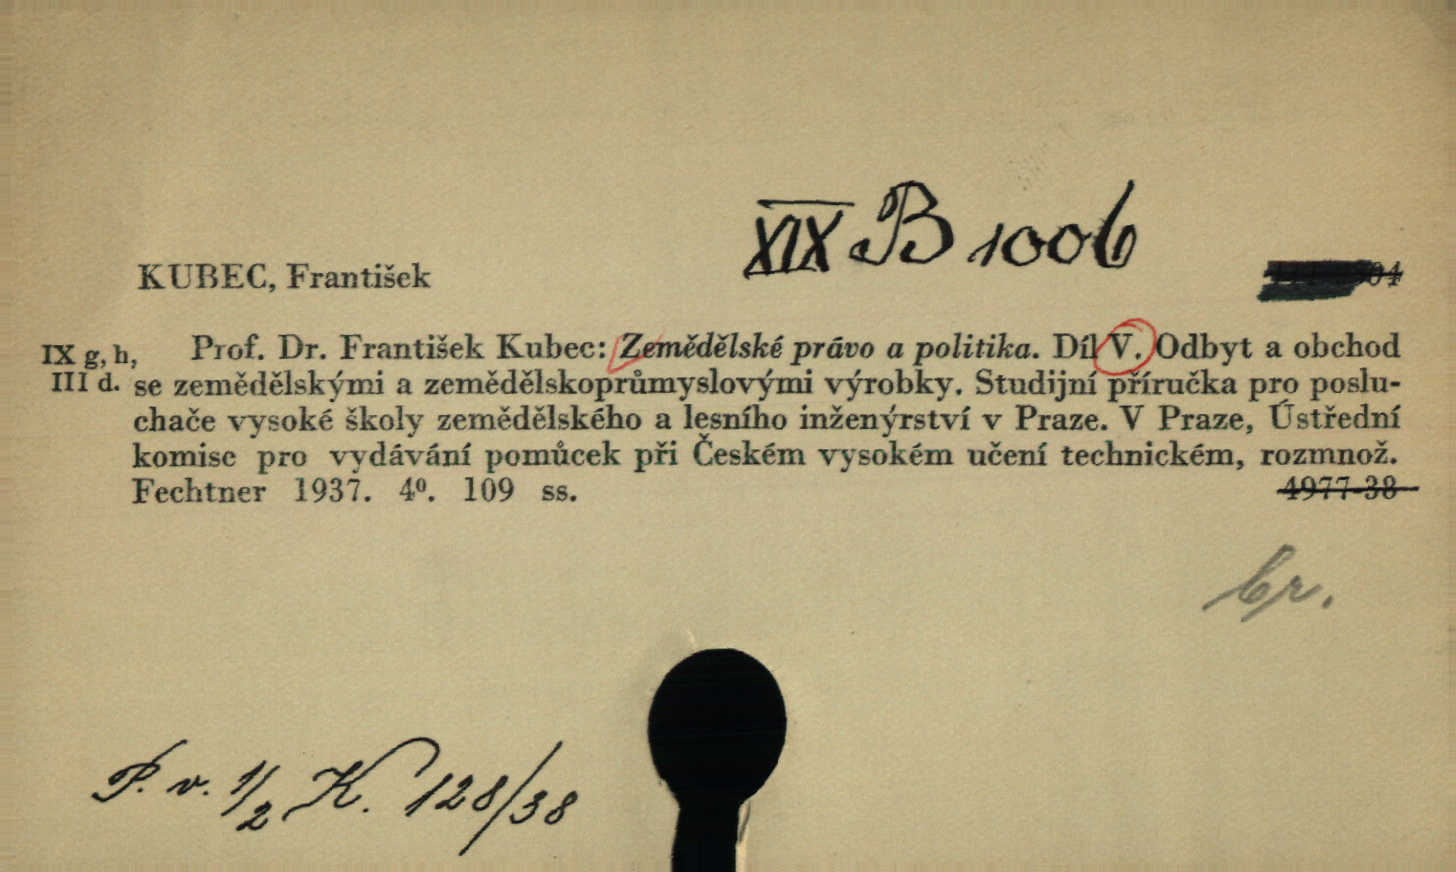 XIX B 1006
KUBEC, František
IX g, h, Prof. Dr. František Kubec: Zemědělské právo a politika. Díl V. Odbyt a obchod
III d. se zemědělskými a zemědělskoprůmyslovými výrobky. Studijní příručka pro poslu-
chače vysoké školy zemědělského a lesního inženýrství v Praze. V Praze, Ústřední
komise pro vydávání pomůcek při Českém vysokém učení technickém, rozmnož.
Fechtner 1937. 4⁰. 109 ss. 4977-38
br.
P. v. 1/2 K. 128/38